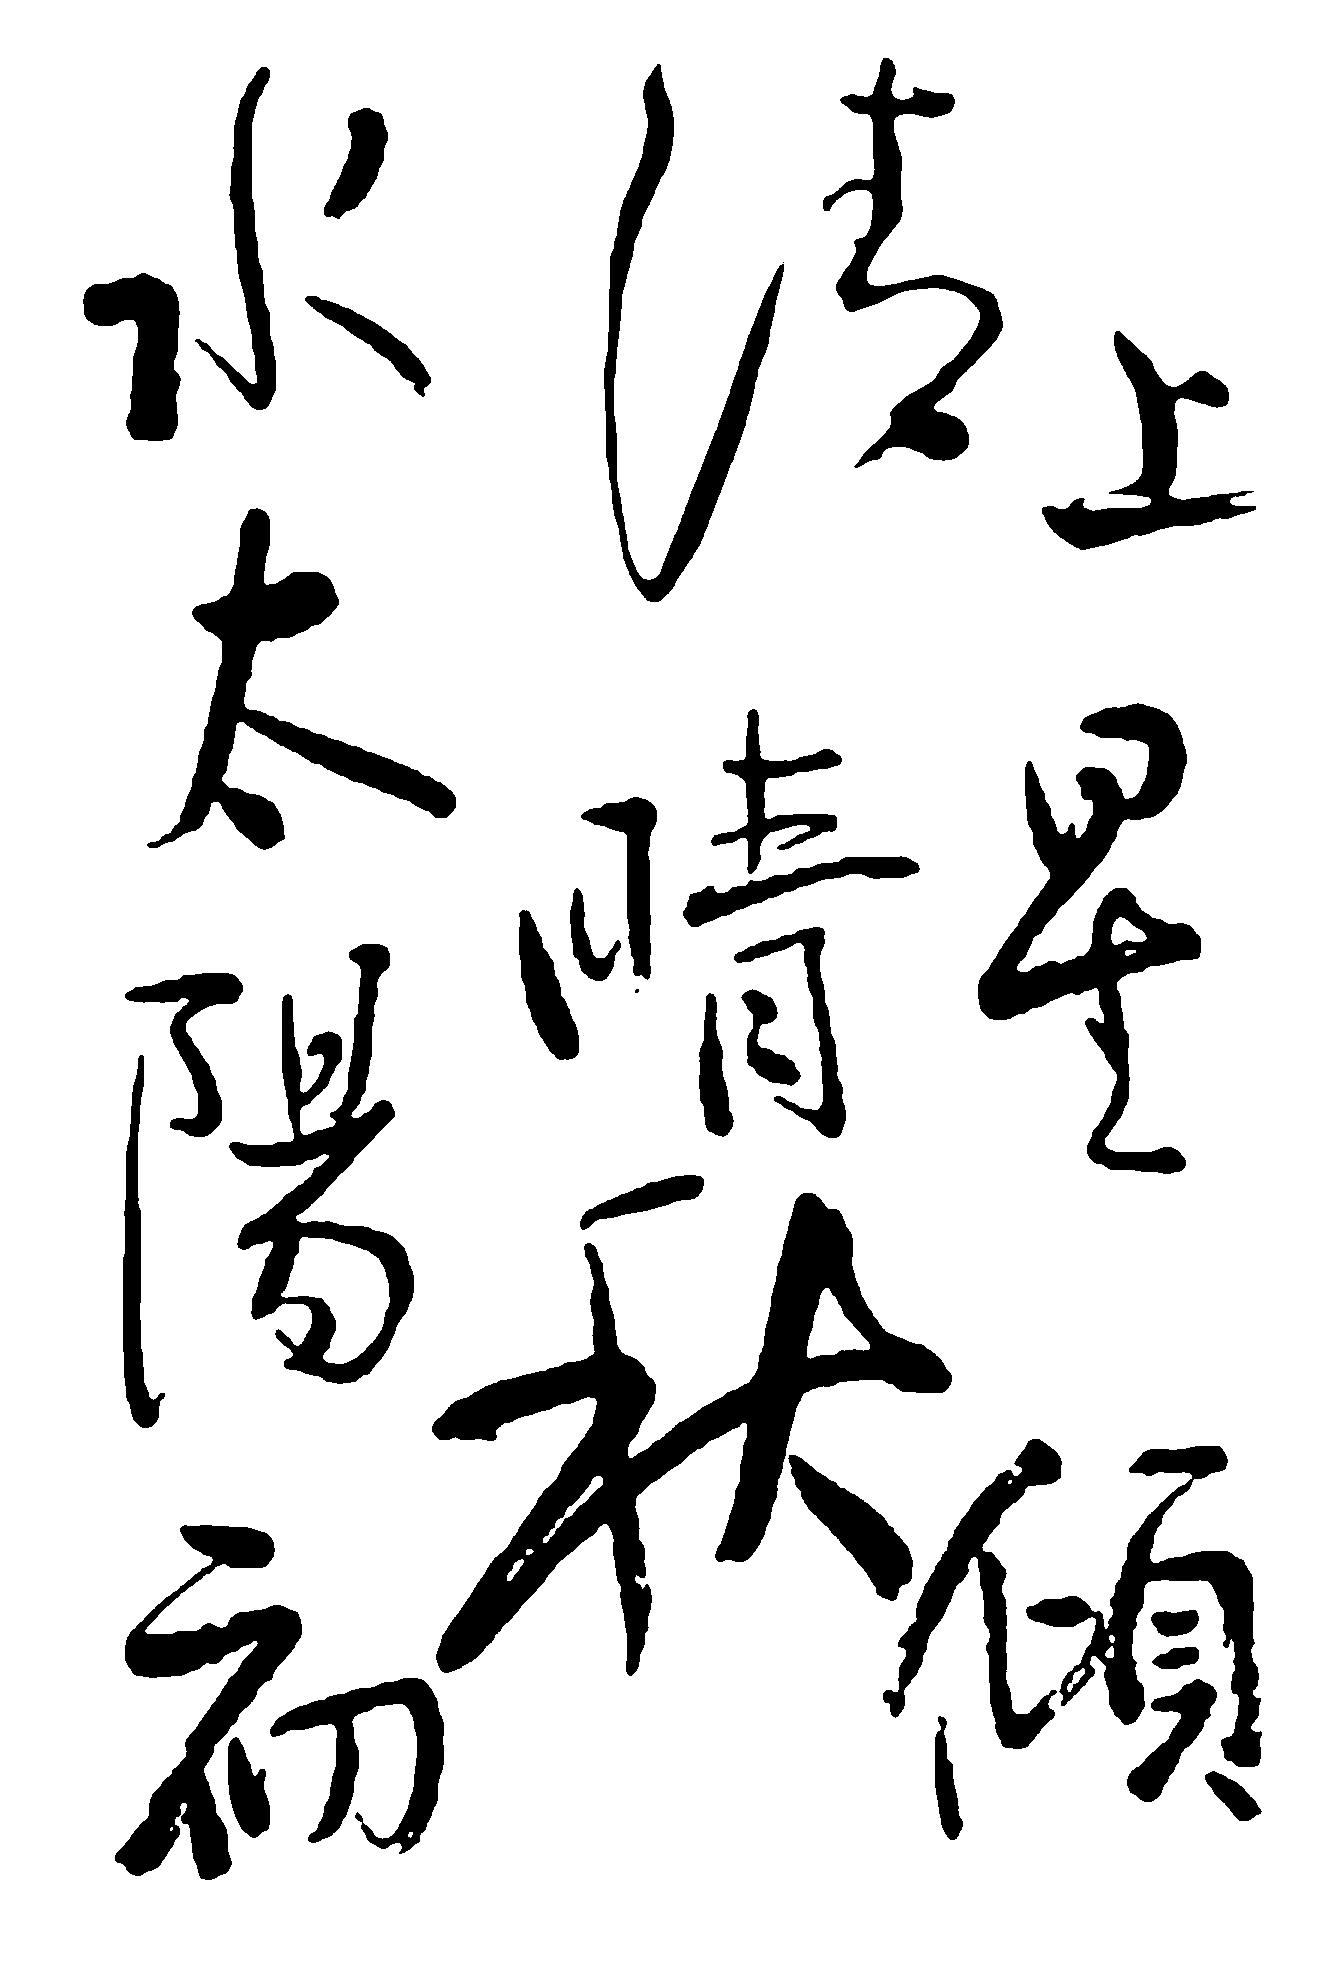 上星傾
清晴秋
水太陽初